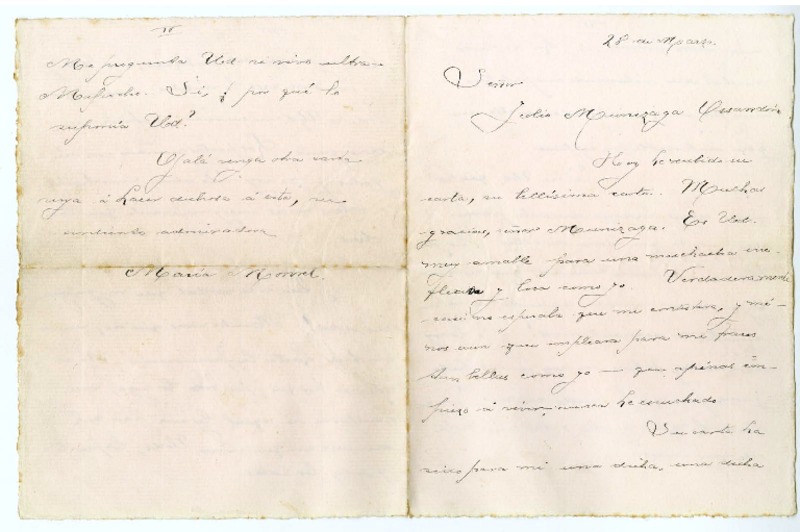 28 de Marzo.
Señor
Julio Munizaga Ossandón
Hoy he recibido su
carta, su bellísima carta. Muchas
gracias, señor Munizaga. Es Ud.
muy amable para una muchacha
y loca como yo. Verdaderamente
casi no esperaba que me contestara, y mé-
nos aun que empleara para mi frases
tan bellas como yo — que apénas em-
piezo á vivir, nunca he escuchado
Su carta ha
sido para mi una dicha, una dicha
Me pregunta Ud si vivo ultra-
Mapocho. Si, ¿ por qué lo
suponía Ud?
Ojalá venga otra carta
suya á hacer dichosa á esta, su
admiradora
María